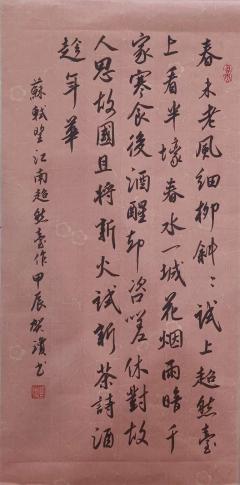 春未老風細柳斜斜試上超然臺
上看半壕春水一城花烟雨暗千
家寒食後酒醒却咨嗟休對故
人思故國且將新火試新茶詩酒
趁年華
蘇軾望江南超然臺作甲辰賀濱書